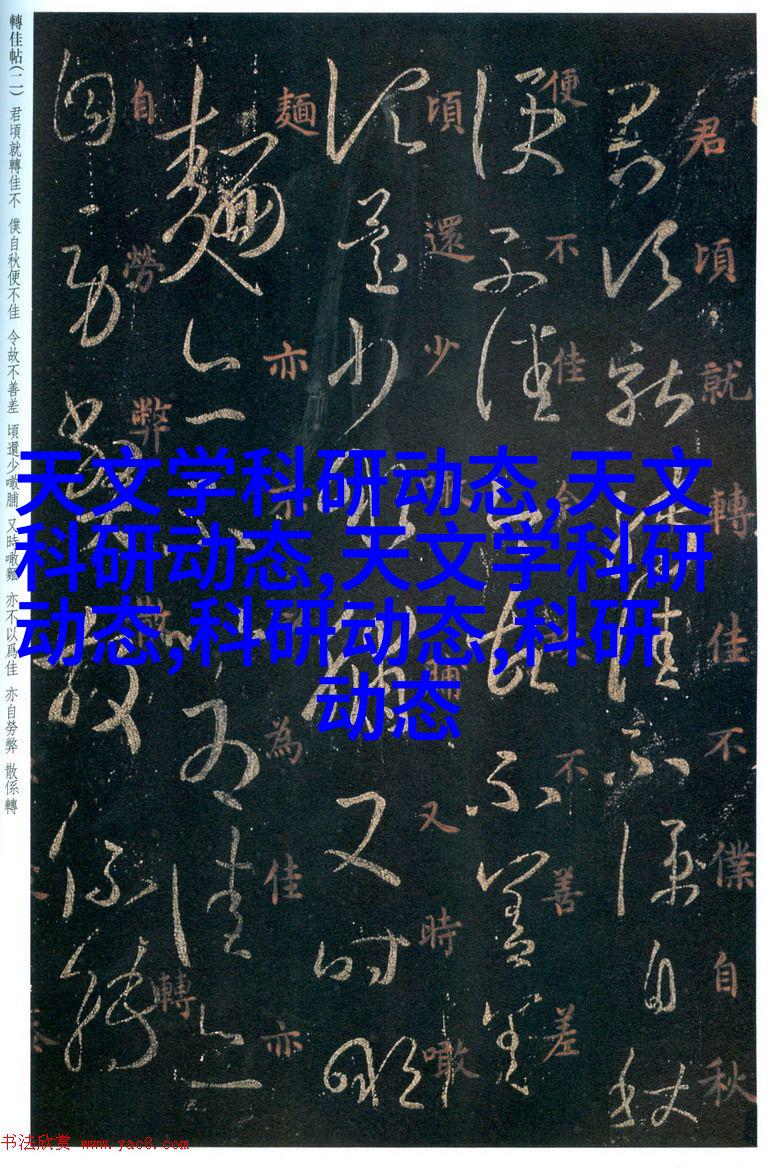 轉佳帖(二) 君頃就轉佳不 僕自秋便不佳 令故不善差 頃還少噉脯 又時噉麵 亦不以爲佳 亦自勞弊 散係轉
君頃就轉佳不僕自秋
便不佳令不善差
頃還少噉脯又時噉
麵亦不為佳亦
自勞弊散轉
天文学科研动态,天文
科研动态,天文学科研
动态,科研动态,科研
动态
书法欣赏 www.yac8.com